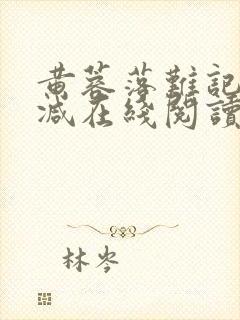 黄蓉落難記
减在綫閱讀
林岑